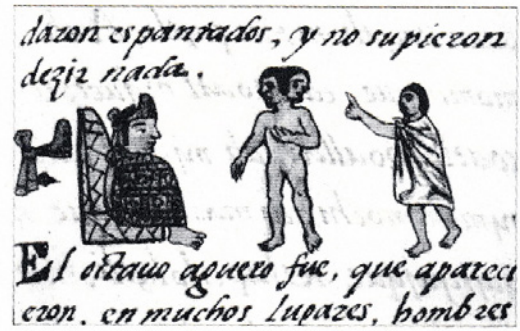 daron espantados, y no supieron
dezir nada.
El octauo aguero fue, que apareci
eron, en muchos lugares, hombres